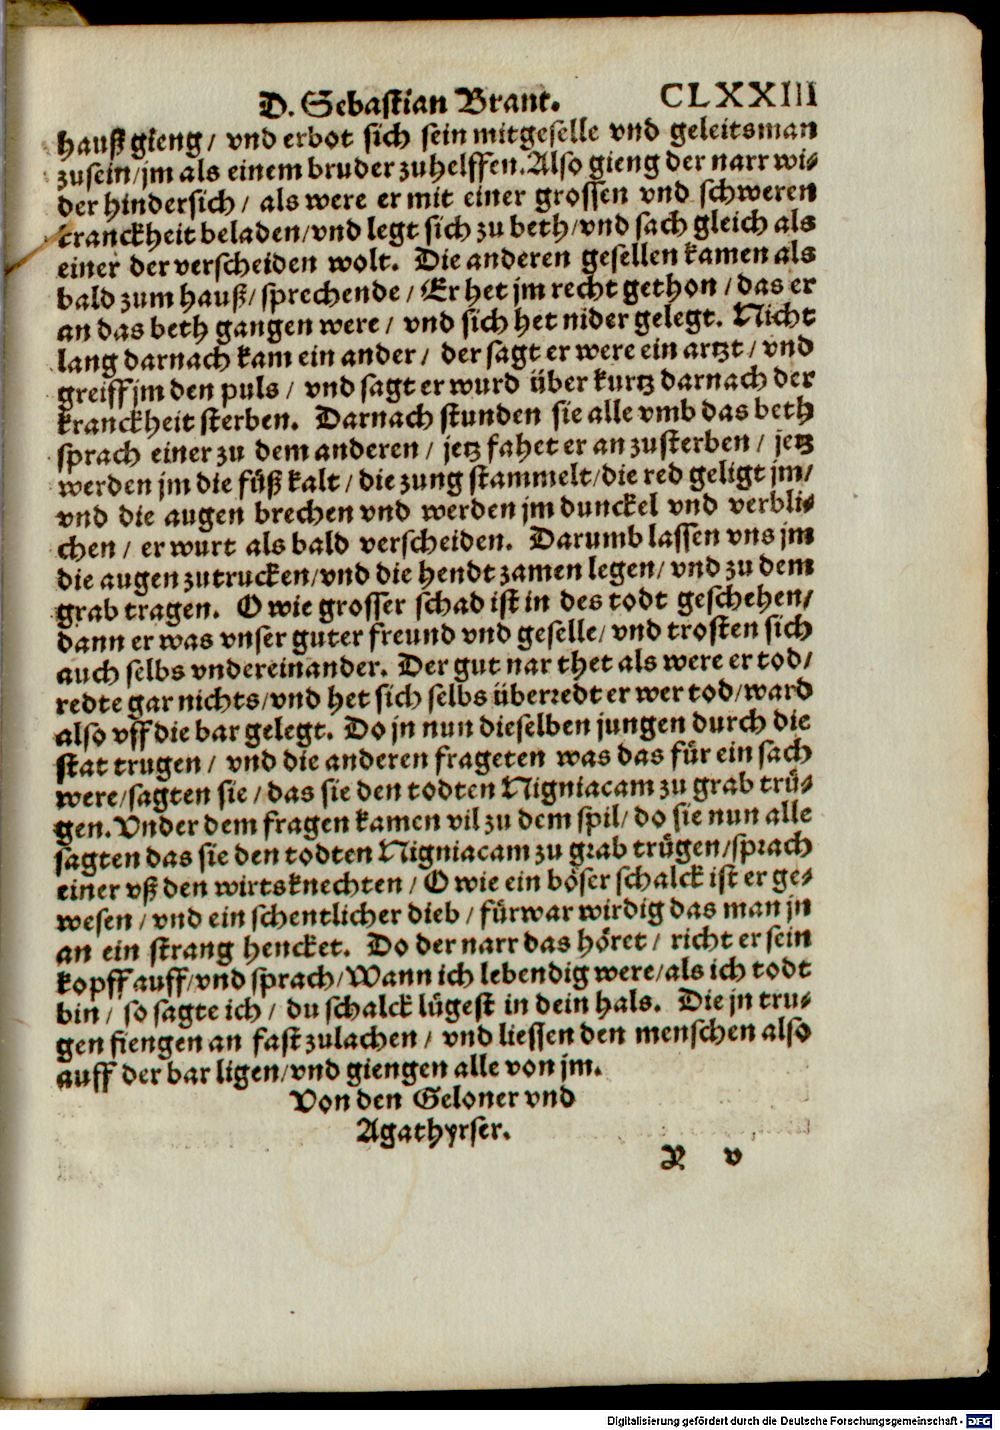 D. Sebastian Brant. CLXXIII
hauß gieng / vnd erbot sich sein mitgeselle vnd geleitsman
zusein/jm als einem bruder zuhelffen. Also gieng der narr wi-
der hindersich / als were er mit einer grossen vnd schweren
cranckheit beladen/vnd legt sich zu beth/vnd sach gleich als
einer der verscheiden wolt. Die anderen gesellen kamen als
bald zum hauß/ sprechende / Er het jm recht gethon / das er
an das beth gangen were / vnd sich het nider gelegt. Nicht
lang darnach kam ein ander / der sagt er were ein artzt / vnd
greiff jm den puls / vnd sagt er wurd über kurtz darnach der
kranckheit sterben. Darnach stunden sie alle vmb das beth
sprach einer zu dem anderen / jetz fahet er an zusterben / jetz
werden jm die füß kalt / die zung stammelt/die red geligt jm/
vnd die augen brechen vnd werden jm dunckel vnd verbli-
chen / er wurt als bald verscheiden. Darumb lassen vns jm
die augen zutrucken/vnd die hendt zamen legen/ vnd zu dem
grab tragen. O wie grosser schad ist in des todt geschehen/
dann er was vnser guter freund vnd geselle/ vnd trosten sich
auch selbs vndereinander. Der gut nar thet als were er tod/
redte gar nichts/vnd het sich selbs überredt er wer tod/ward
also vff die bar gelegt. Do jn nun dieselben jungen durch die
stat trugen / vnd die anderen frageten was das für ein sach
were/sagten sie / das sie den todten Nigniacam zu grab trü-
gen. Vnder dem fragen kamen vil zu dem spil/ do sie nun alle
sagten das sie den todten Nigniacam zu grab trügen/sprach
einer vß den wirtsknechten / O wie ein böser schalck ist er ge-
wesen / vnd ein schentlicher dieb / fürwar wirdig das man jn
an ein strang hencket. Do der narr das höret / richt er sein
kopff auff/vnd sprach/Wann ich lebendig were/als ich todt
bin / so sagte ich / du schalck lügest in dein hals. Die jn tru-
gen fiengen an fast zulachen / vnd liessen den menschen also
auff der bar ligen/vnd giengen alle von jm.
Von den Geloner vnd
Agathyrser.
R v
Digitalisierung gefördert durch die Deutsche Forschungsgemeinschaft - DFG